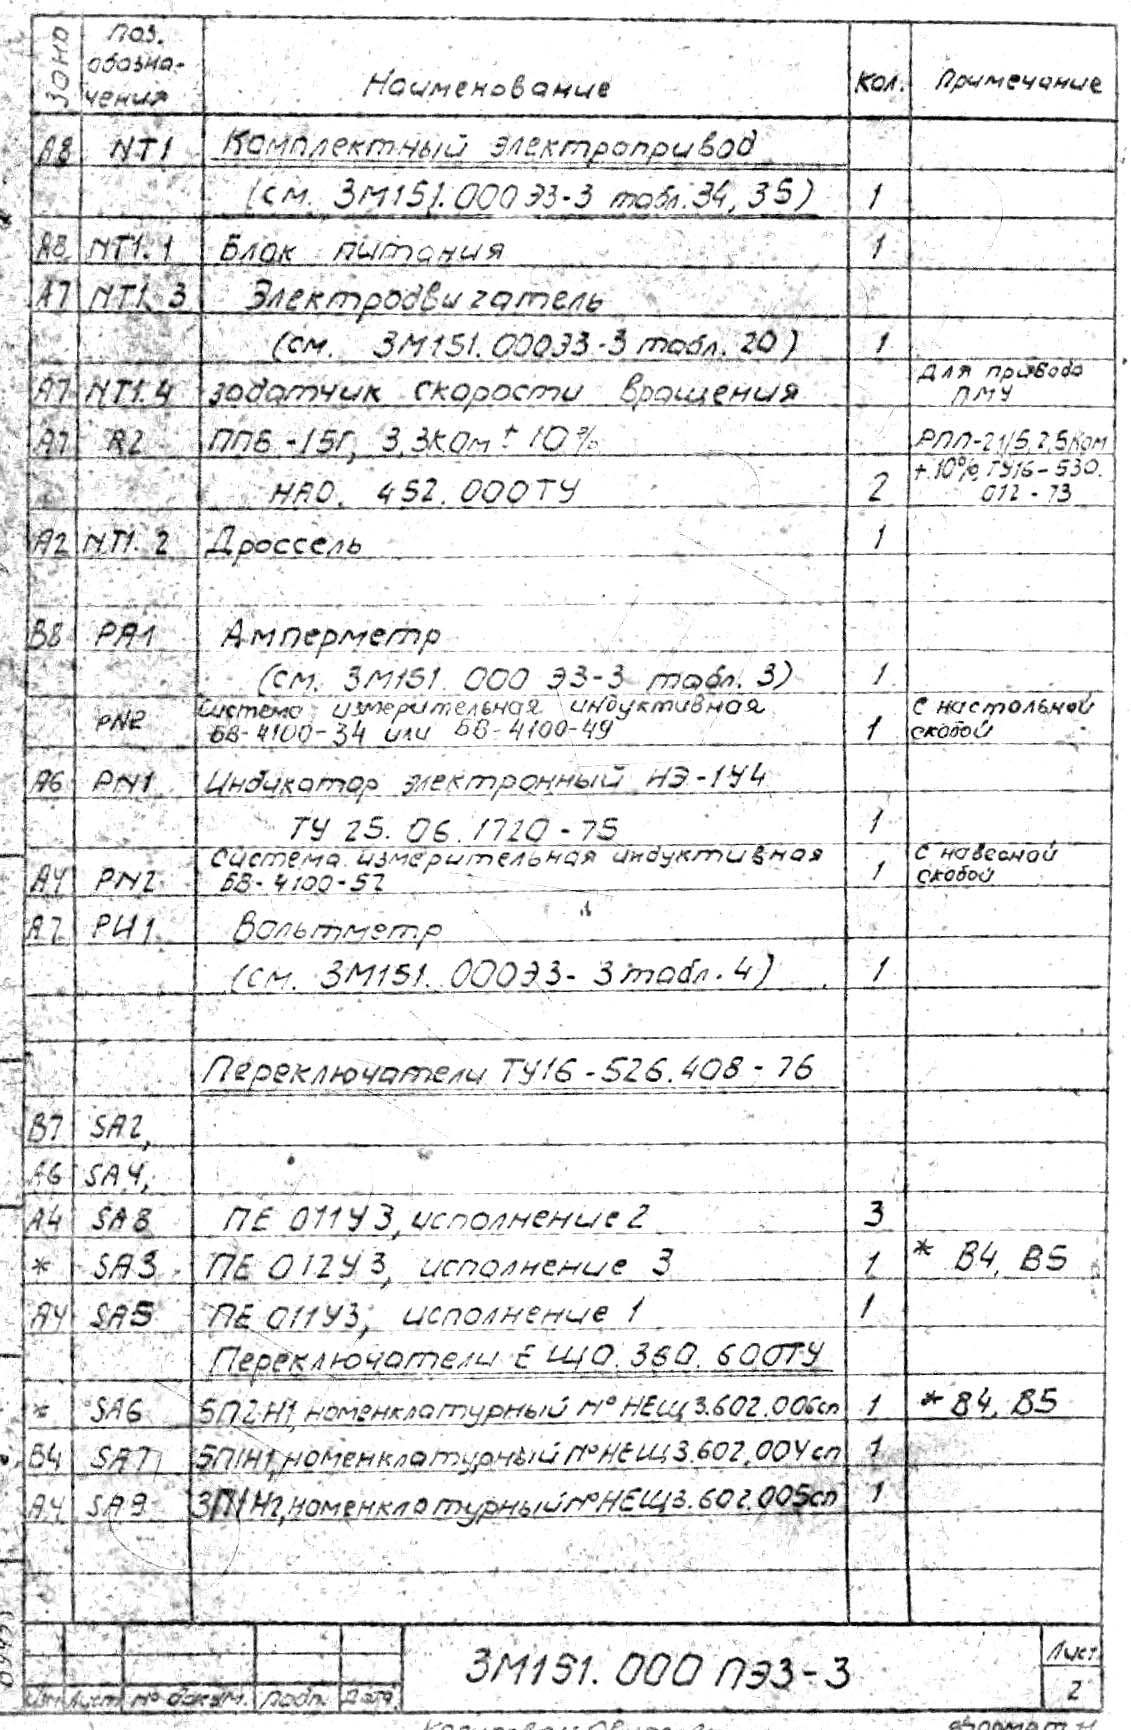 Зона Поз. обозна-чения Наименование Кол. Примечание
А8 NT1 Комплектный электропривод
(см. 3М151.000 Э3-3 табл. 34, 35) 1
А8 NT1.1 Блок питания 1
А7 NT1.3 Электродвигатель
(см. 3М151.000Э3-3 табл. 20) 1
А7 NT1.4 задатчик скорости вращения Для привода ПМУ
А7 R2 ППБ-15Г, 3,3кОм ± 10% РПП-21/5, 2,5Ком
НАО. 452.000ТУ 2 ± 10%, ТУ16-530. 012-73
А2 NT1.2 Дроссель 1
В8 РА1 Амперметр
(см. 3М151.000 Э3-3 табл. 3) 1
PN2 Система измерительная индуктивная С настольной
БВ-4100-34 или БВ-4100-49 1 скобой
А6 PN1 Индикатор электронный НЭ-1У4
ТУ 25.06.1720-75 1
Система измерительная индуктивная С навесной
А4 PN2 БВ-4100-57 1 скобой
А7 РU1 Вольтметр
(см. 3М151.000Э3-3 табл. 4) 1
Переключатели ТУ16-526.408-76
В7 SA2,
А6 SA4,
А4 SA8 ПЕ 011У3, исполнение 2 3
* SA3 ПЕ 012У3, исполнение 3 1 * В4, В5
А4 SA5 ПЕ 011У3, исполнение 1 1
Переключатели ЕЩ0.360.600ТУ
* SA6 5П2Н1, номенклатурный N° НЕЩ3.602.006сп 1 * В4, В5
В4 SA7 5П1Н1, номенклатурный N° НЕЩ3.602.004сп 1
А4 SA9 3П1Н2, номенклатурный N° НЕЩ3.602.005сп 1
3М151.000 ПЭ3-3 Лист
Изм Лист N° докум. Подп. Дата 2
Копировал Формат 11